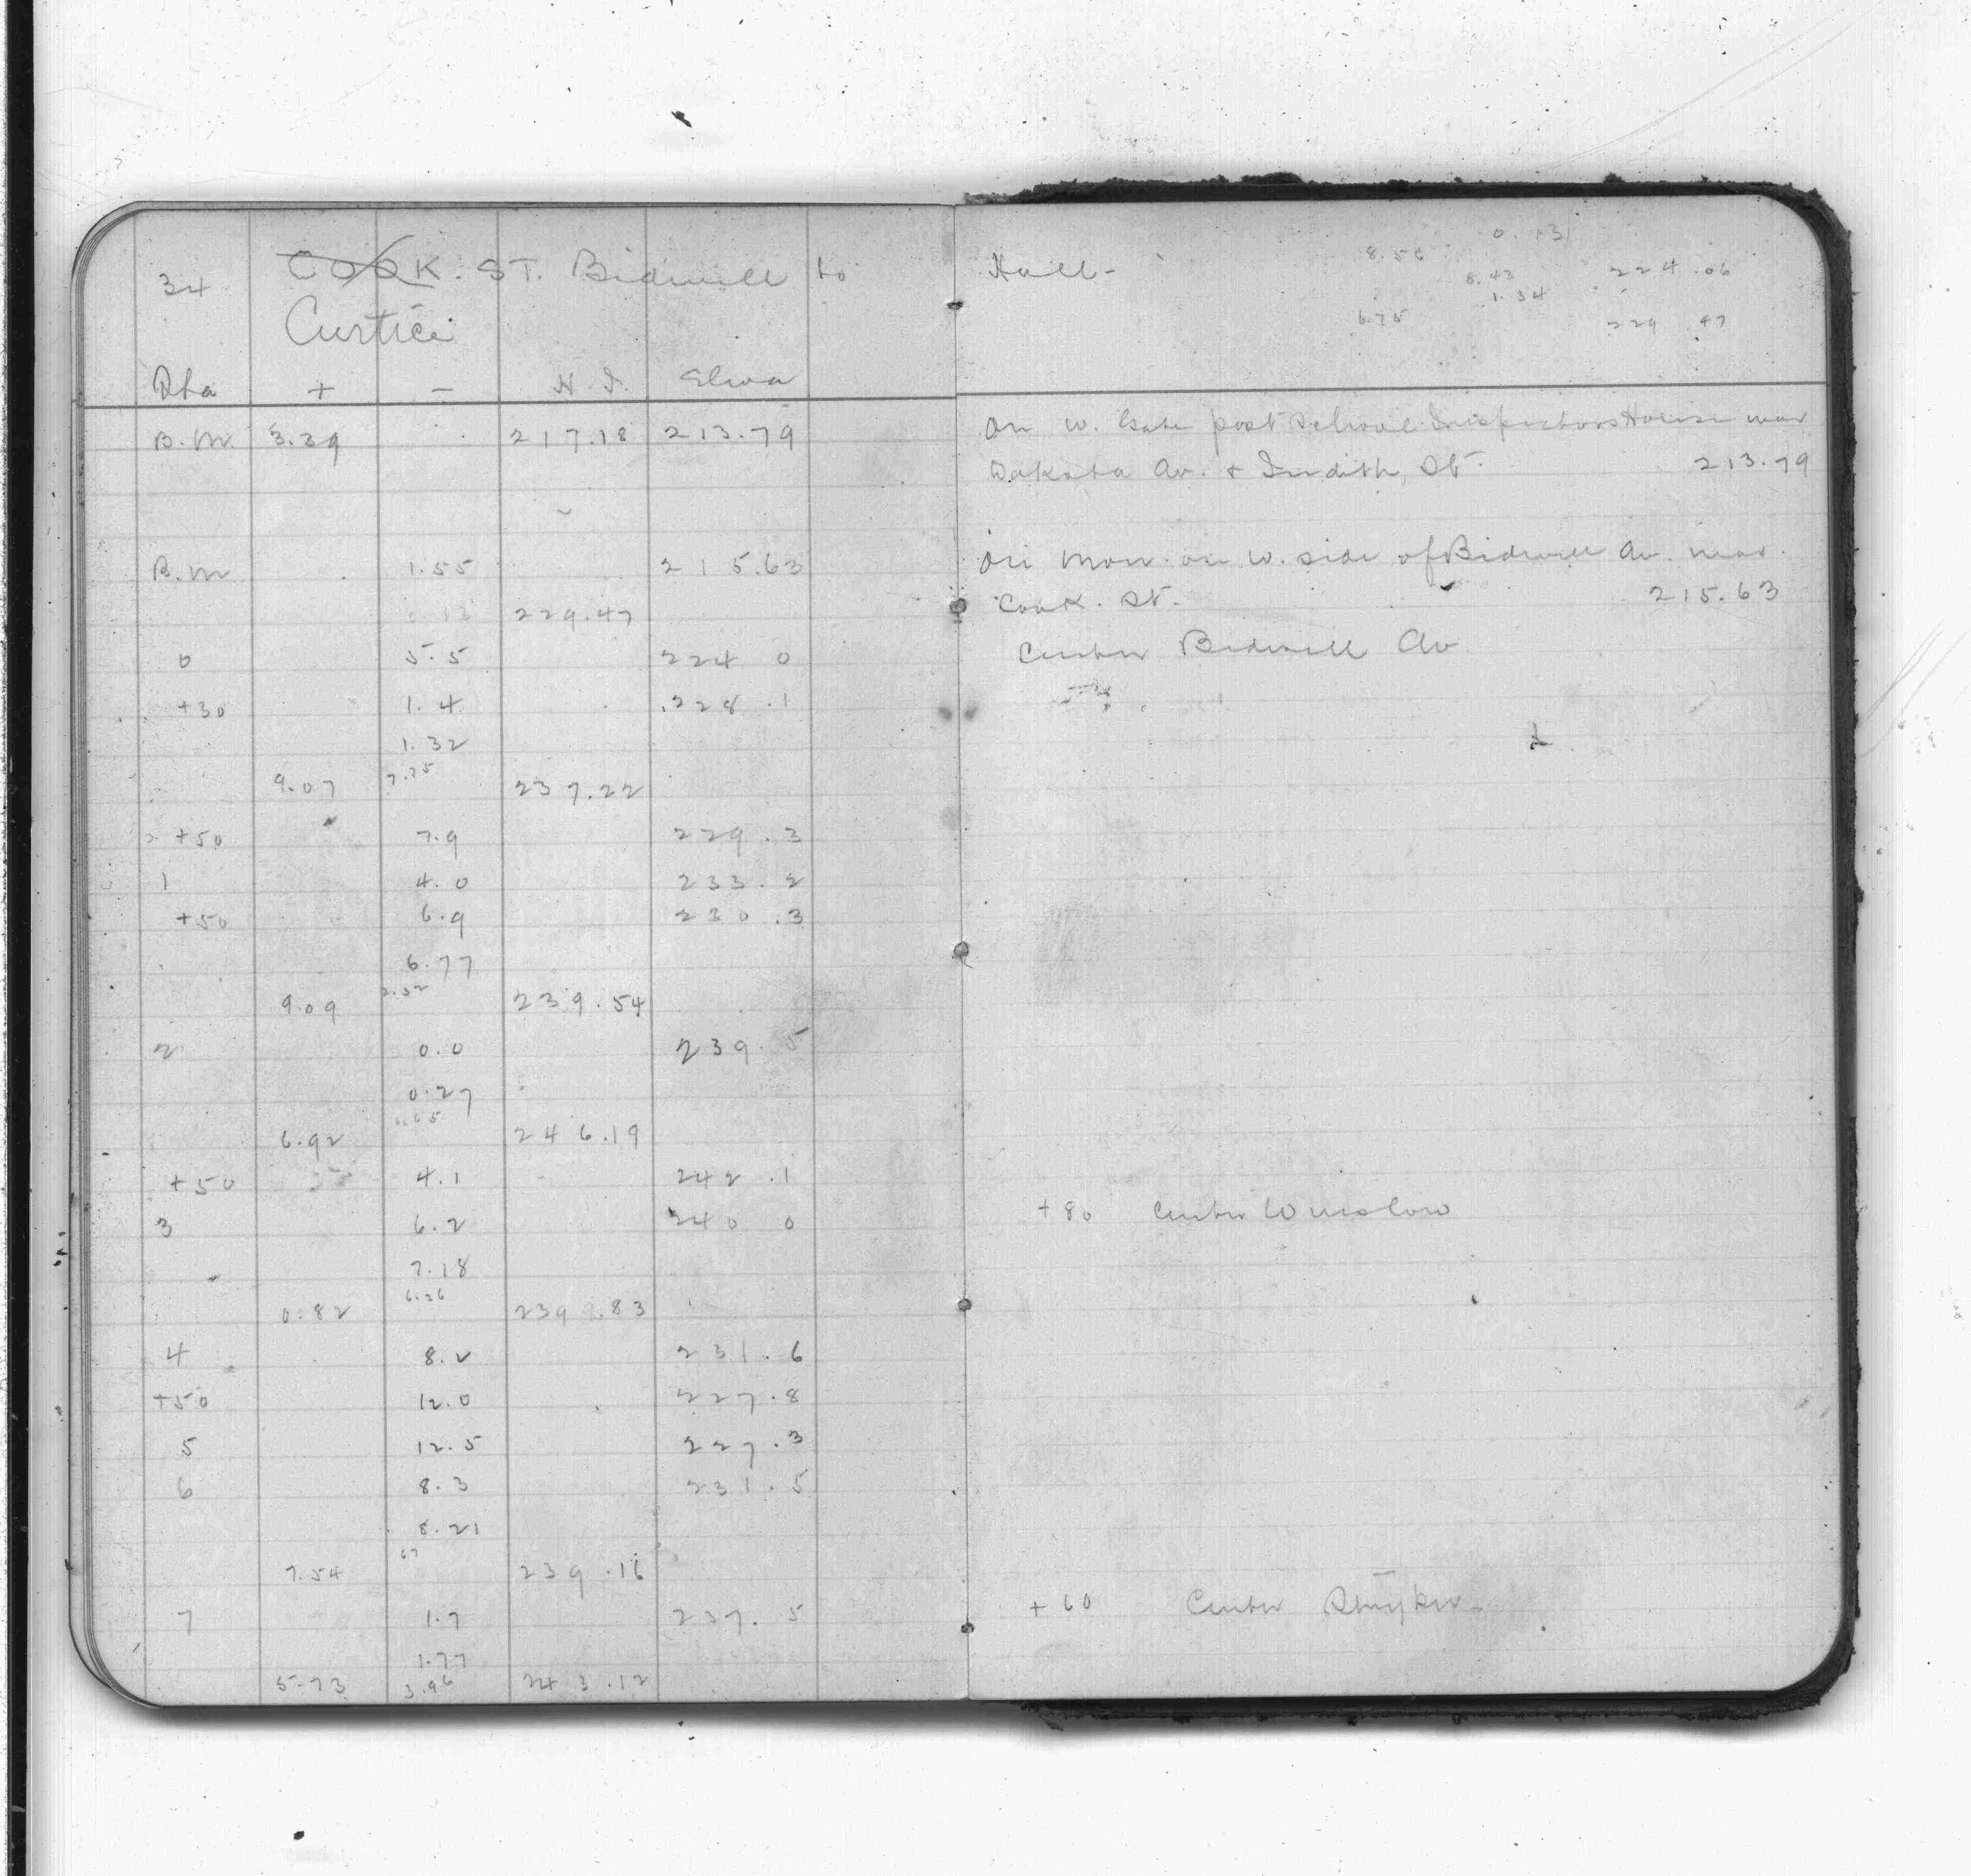 34 COOK ST. Bidwell to Hall-
Curtice
8.56 0.13
8.43 224.06
1.34
6.75 229 47
Sta + - H.I. Eleva
B.M. 3.39 217.18 213.79 On W. Gate post School Inspectors House near
Dakota Av. & Indith, St. 213.79
B.M 1.55 215.63 On Mon. on W. side of Bidwell Av. near
0.13 229.47 Cook. St. 215.63
0 5.5 224 0 Center Bidwell Av
+30 1.4 228.1
1.32
9.07 7.75 237.22
+50 7.9 229.3
1 4.0 233.2
+50 6.9 230.3
6.77
9.09 2.32 239.54
2 0.0 239.5
0.27
6.92 6.65 246.19
+50 4.1 242.1
3 6.2 240 0 +80 Center Winslow
7.18
0.82 6.36 239.83
4 8.2 231.6
+50 12.0 227.8
5 12.5 227.3
6 8.3 231.5
8.21
7.54 67 239.16
7 1.7 237.5 +60 Center Stryker
1.77
5.73 3.96 243.12